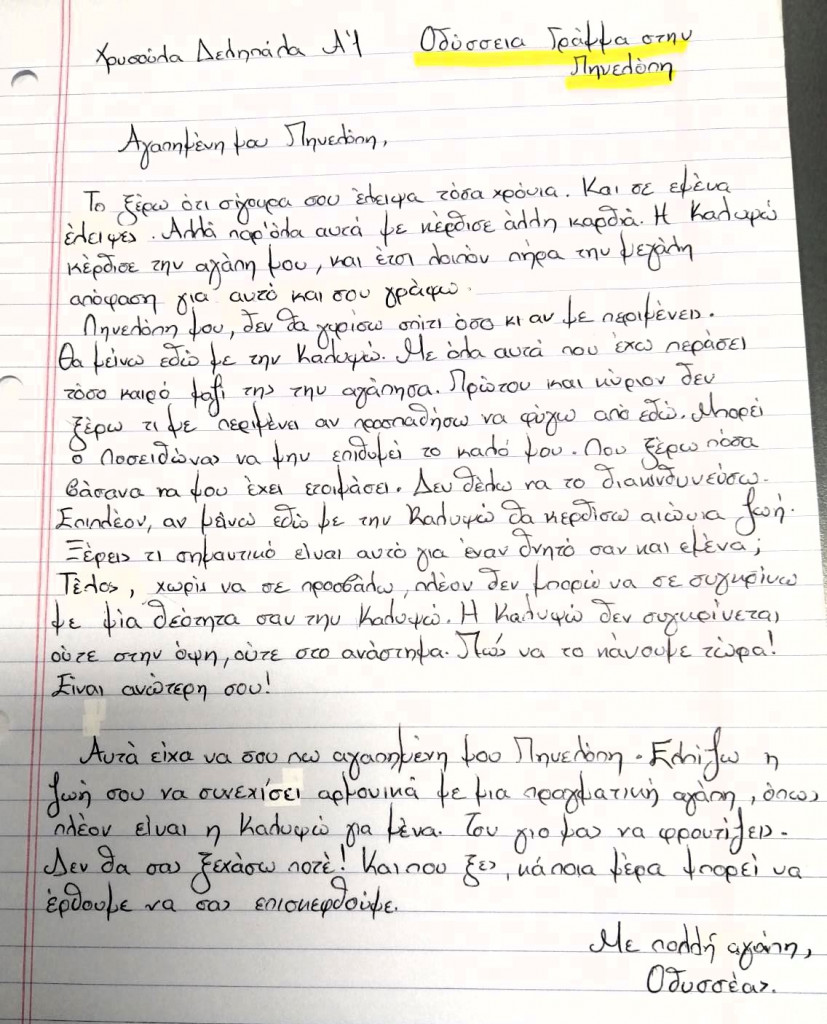 Χρυσούλα Δεληπάλα Α'1 Οδύσσεια Γράμμα στην
Πηνελόπη
Αγαπημένη μου Πηνελόπη,
Το ξέρω ότι σίγουρα σου έλειψα τόσα χρόνια. Και σε εμένα
έλειψες. Αλλά παρ'όλα αυτά με κέρδισε άλλη καρδιά. Η Καλυψώ
κέρδισε την αγάπη μου, και έτσι λοιπόν πήρα την μεγάλη
απόφαση για αυτό και σου γράφω.
Πηνελόπη μου, δεν θα γυρίσω σπίτι όσο κι αν με περιμένεις.
Θα μείνω εδώ με την Καλυψώ. Με όλα αυτά που έχω περάσει
τόσο καιρό μαζί της την αγάπησα. Πρώτον και κύριον δεν
ξέρω τι με περιμένει αν προσπαθήσω να φύγω από εδώ. Μπορεί
ο Ποσειδώνας να μην επιθυμεί το καλό μου. Που ξέρω πόσα
βάσανα να μου έχει ετοιμάσει. Δεν θέλω να το διακινδυνεύσω.
Επιπλέον, αν μείνω εδώ με την Καλυψώ θα κερδίσω αιώνια ζωή.
Ξέρεις τι σημαντικό είναι αυτό για έναν θνητό σαν και εμένα;
Τέλος, χωρίς να σε προσβάλω, πλέον δεν μπορώ να σε συγκρίνω
με μία θεότητα σαν την Καλυψώ. Η Καλυψώ δεν συγκρίνεται
ούτε στην όψη, ούτε στο ανάστημα. Πώς να το κάνουμε τώρα!
Είναι ανώτερη σου!
Αυτά είχα να σου πω αγαπημένη μου Πηνελόπη. Ελπίζω η
ζωή σου να συνεχίσει αρμονικά με μια πραγματική αγάπη, όπως
πλέον είναι η Καλυψώ για μένα. Τον γιο μας να φροντίζεις.
Δεν θα σας ξεχάσω ποτέ! Και που ξες, κάποια μέρα μπορεί να
έρθουμε να σας επισκεφθούμε.
Με πολλή αγάπη,
Οδυσσέας.